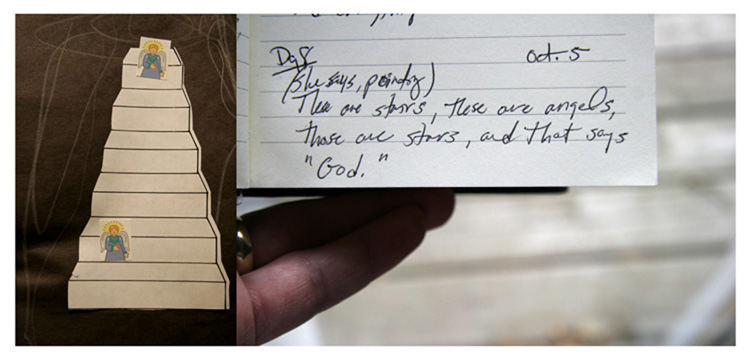 Oct. 5
(she says, pointing)
These are stairs, these are angels,
those are stars, and that says
"God."